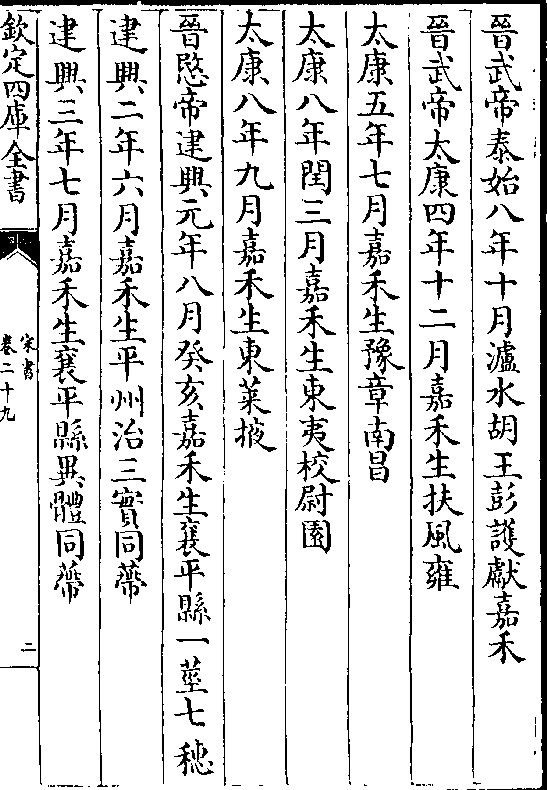 晉武帝泰始八年十月瀘水胡王彭護獻嘉禾
晉武帝太康四年十二月嘉禾生扶風雍
太康五年七月嘉禾生豫章南昌
太康八年閏三月嘉禾生東夷校尉園
太康八年九月嘉禾生東萊掖
晉愍帝建興元年八月癸亥嘉禾生襄平縣一莖七穗
建興二年六月嘉禾生平州治三實同蔕
建興三年七月嘉禾生襄平縣異體同蔕
欽定四庫全書
宋書
卷二十九
二